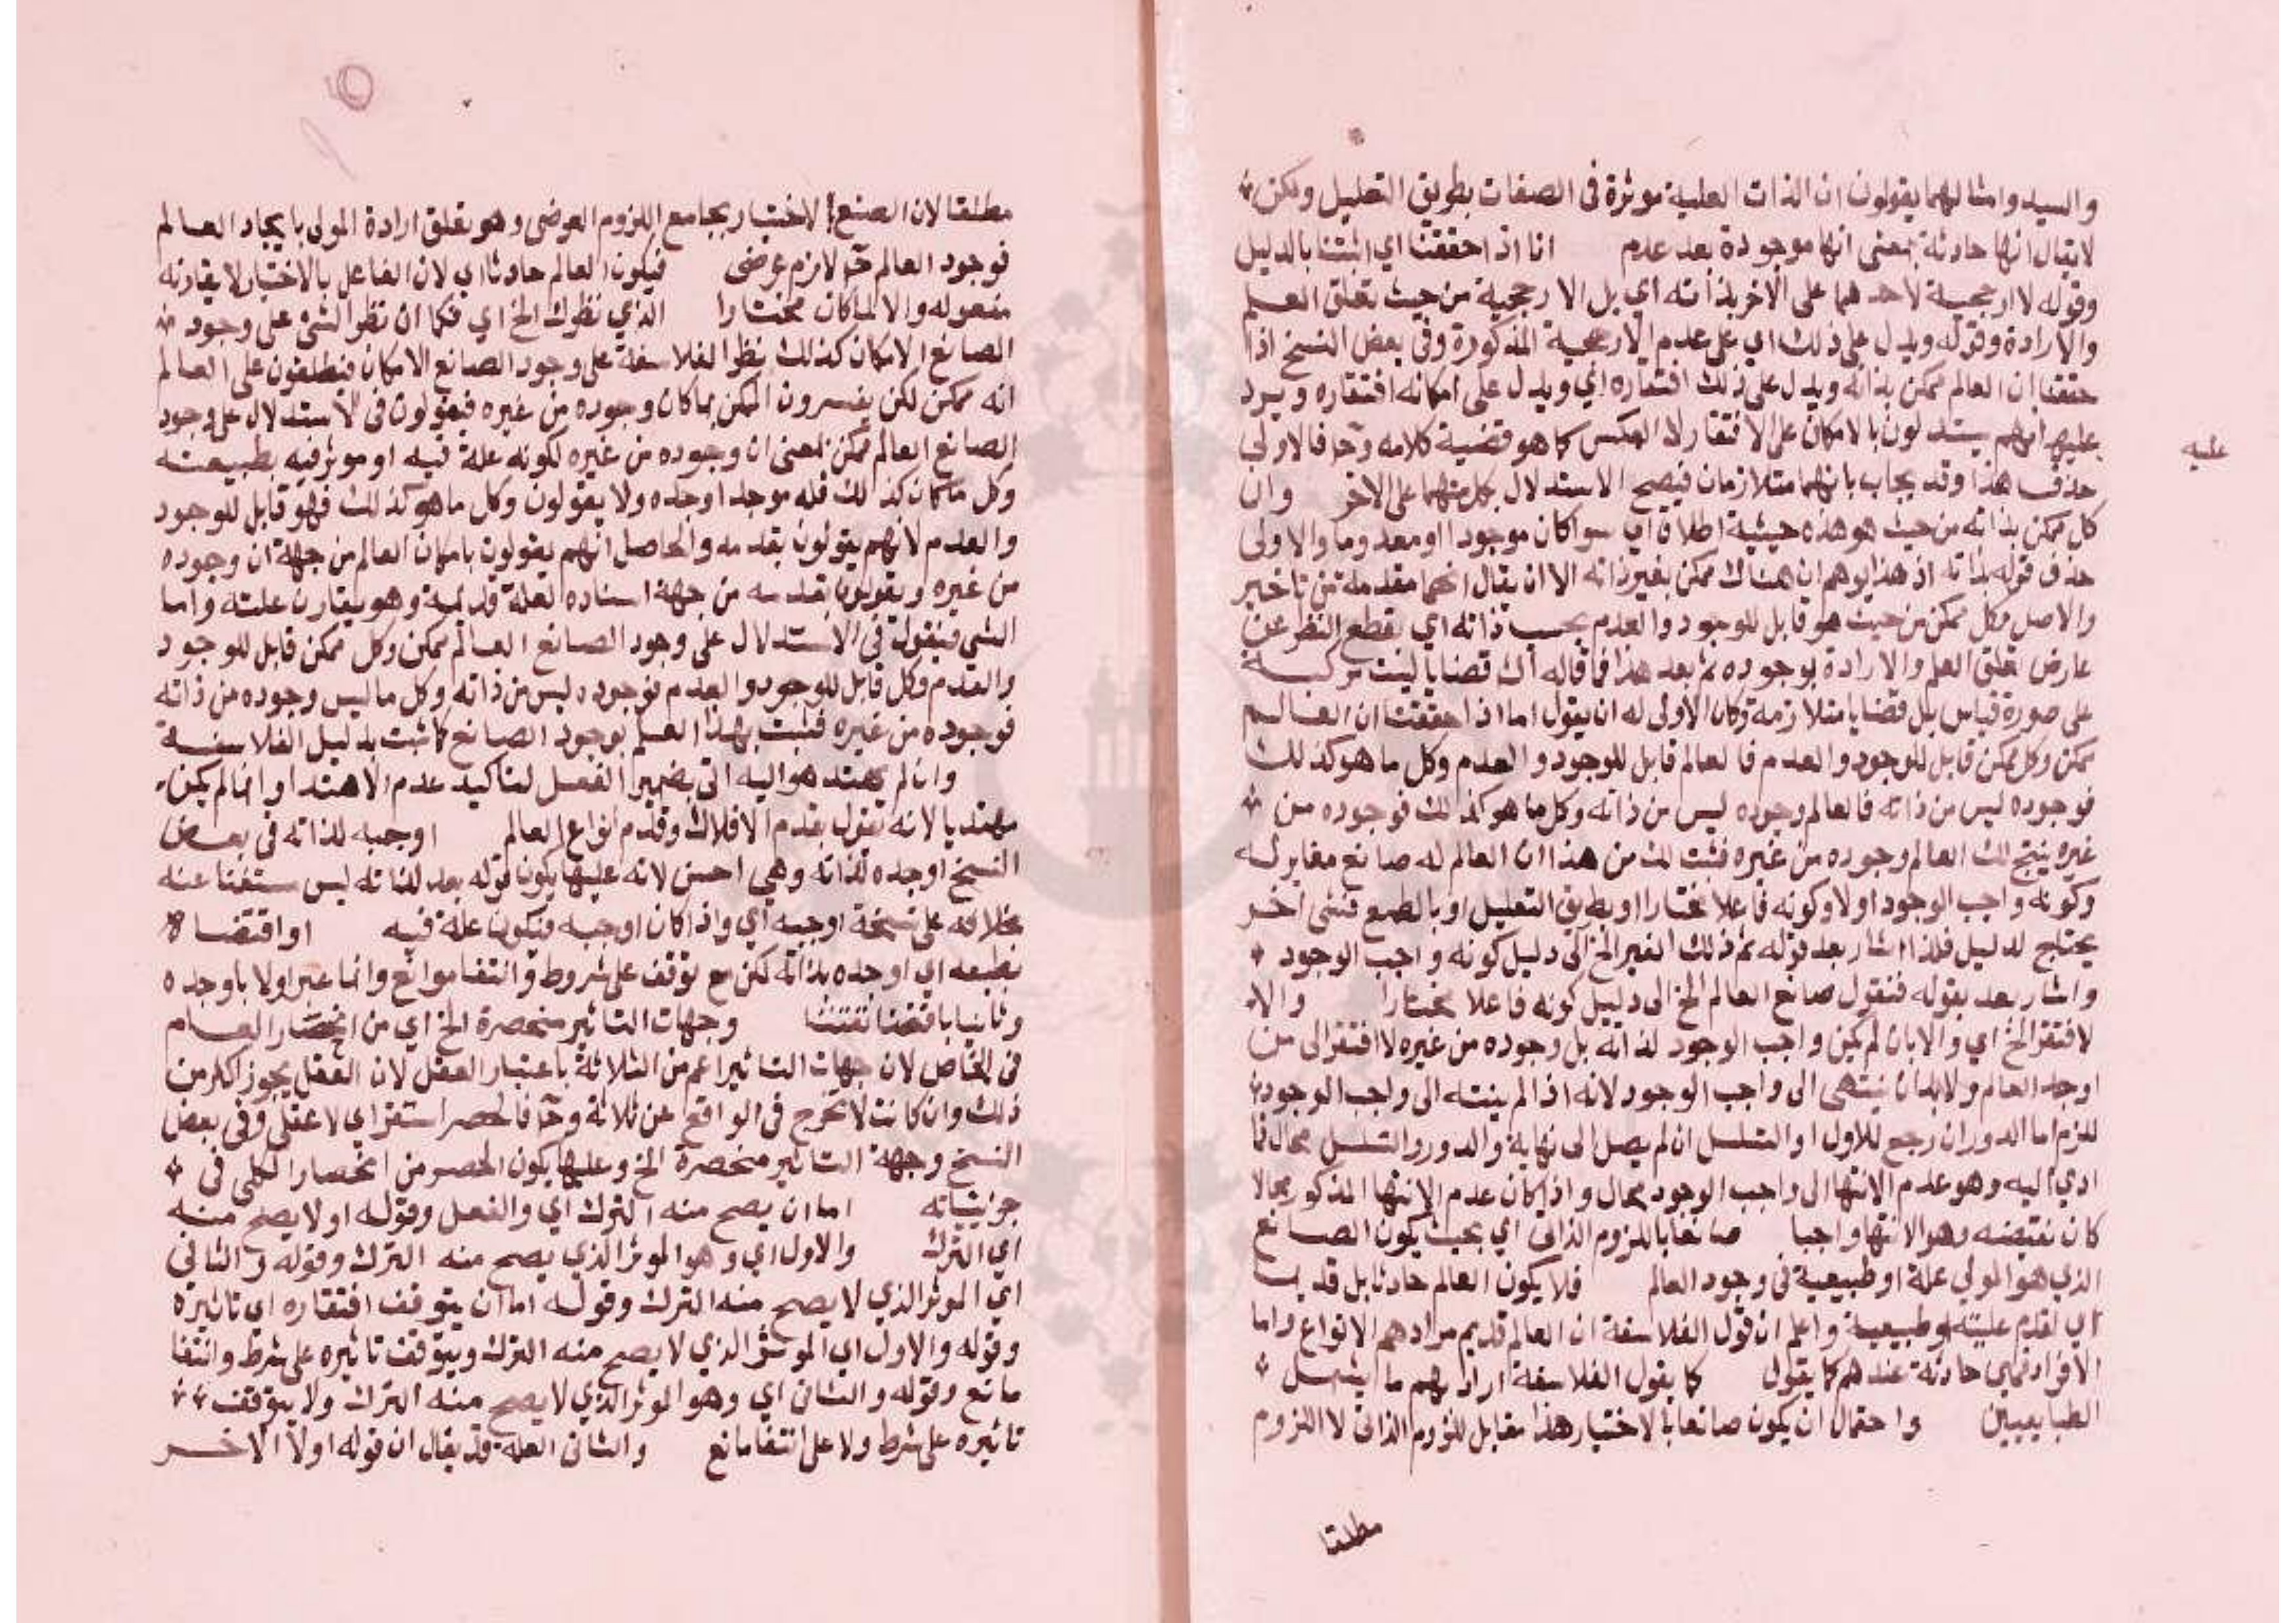 والسيد وامثالهما يقولون ان الذات العلية موثرة فى الصفات بطريق التعليل ولكن
لا يقال انها حادثة بمعنى انها موجودة بعد عدم انا اذا حققنا اي اثبتنا بالدليل
وقوله لا ارجحية لاحدهما على الاخر بذاته اي بل الارجحية من حيث تعلق العلم
والارادة وقوله ويدل على ذلك اي على عدم الارجحية المذكورة وفى بعض النسخ اذا
حققنا ان العالم ممكن بذاته ويدل على ذلك افتقاره اي ويدل على امكانه افتقاره ويرد
عليه انهم يستدلون بالامكان على الافتقار لا العكس كما هو قضية كلامه وح فالاولى
عليه
حذف هذا وقد يجاب بانهما متلازمان فيصح الاستدلال بكل منهما على الاخر وان
كل ممكن بذاته من حيث هو هذه حيثية اطلاق اي سوا كان موجودا او معدوما والاولى
حذف قوله بذاته اذ هذا يوهم ان هناك ممكن بغير ذاته الا ان يقال انها مقدمة من تاخير
والاصل وكل ممكن من حيث هو قابل للوجود والعدم بحسب ذاته اي بقطع النظر عن
عارض تعلق العلم والارادة بوجوده ثم بعد هذا فما قاله لك قضايا ليست مركبة
على صورة قياس بل قضايا متلازمة وكان الاولى له ان يقول اما اذا حققنا ان العالم
ممكن وكل ممكن قابل للوجود والعدم فالعالم قابل للوجود والعدم وكل ما هو كذلك
فوجوده ليس من ذاته فالعالم وجوده ليس من ذاته وكل ما هو كذلك فوجوده من
غيره ينتج لك العالم وجوده من غيره فثبت لك من هذا ان العالم له صانع مغاير له
وكونه واجب الوجود اولا وكونه فاعلا مختارا او بطريق التعليل او بالطبع فشى اخر
يحتاج لدليل فلذا اشار بعد بقوله ثم ذلك الغير الخ الى دليل كونه واجب الوجود
واشار بعد بقوله فنقول صانع العالم الخ الى دليل كونه فاعلا مختارا والا
لافتقر الخ اي والا بان لم يكن واجب الوجود لذاته بل وجوده من غيره لافتقر الى من
اوجد العالم ولا بد ان ينتهى الى واجب الوجود لانه اذا لم ينته الى واجب الوجود
للزم اما الدور ان رجع للاول او التسلسل ان لم يصل الى نهاية والدور والتسلسل محال فما
ادي اليه وهو عدم الانتها الى واجب الوجود محال واذا كان عدم الانتها المذكور محالا
كان نقيضه وهو الانتها واجبا صانعا باللزوم الذاتى اي بحيث يكون الصانع
الذي هو المولى علة او طبيعية فى وجود العالم فلا يكون العالم حادثا بل قديما
اي لقدم عليته او طبيعية واعلم ان قول الفلاسفة ان العالم قديم مرادهم الانواع واما
الافراد فهى حادثة عندهم كما يقول كما يقول الفلاسفة اراد بهم ما يشمل
الطبايعيين واحتمال ان يكون صانعا بالاختيار هذا مقابل للزوم الذاتى لا اللزوم
مطلقا
مطلقا لان الصنع بالاختيار يجامع اللزوم العرضى وهو تعلق ارادة المولى بايجاد العالم
فوجود العالم ح لازم عرضى فيكون العالم حادثا اي لان الفاعل بالاختيار لا يقارنه
مفعوله والا لما كان مختارا الذي نظرك الخ اي فكما ان نظر السنى على وجود
الصانع الامكان كذلك نظر الفلاسفة على وجود الصانع الامكان فيطلقون على العالم
انه ممكن لكن يفسرون الممكن بما كان وجوده من غيره فيقولون فى الاستدلال على وجود
الصانع العالم ممكن بمعنى ان وجوده من غيره لكونه علة فيه او موثر فيه بطبيعته
وكل ما كان كذلك فله موجد اوجده ولا يقولون وكل ما هو كذلك فهو قابل للوجود
والعدم لانهم يقولون بقدمه والحاصل انهم يقولون بامكان العالم من جهة ان وجوده
من غيره ويقولون بقدمه من جهة اسناده لعلة قديمة وهو يقارن علته واما
السنى فيقول فى الاستدلال على وجود الصانع العالم ممكن وكل ممكن قابل للوجود
والعدم وكل قابل للوجود والعدم فوجوده ليس من ذاته وكل ما ليس وجوده من ذاته
فوجوده من غيره فثبت بهذا العلم بوجود الصانع كما ثبت بدليل الفلاسفة
وان لم يهتد هو اليه اتى بضمير الفصل لتاكيد عدم الاهتدا وانما لم يكن
مهتديا لانه يقول بقدم الافلاك وقدم انواع العالم اوجبه لذاته فى بعض
النسخ اوجده لذاته وهى احسن لانه عليها يكون قوله بعد لذاته ليس مستغنا عنه
بخلافه على نسخة اوجبه اي واذا كان اوجبه فيكون علة فيه او اقتضاه
بطبعه اي اوجده بذاته لكن مع توقف على شروط وانتفا موانع وانما عبر اولا باوجده
وثانيا باقتضا تفننا وجهات التاثير منحصرة الخ اي من انحصار العام
فى الخاص لان جهات التاثير اعم من الثلاثة باعتبار العقل لان العقل يجوز اكثر من
ذلك وان كانت لا تخرج فى الواقع عن ثلاثة وح فالحصر استقراي لا عقلى وفى بعض
النسخ وجهة التاثير منحصرة الخ وعليها يكون الحصر من انحصار الكلى فى
جزئياته اما ان يصح منه الترك اي والفعل وقوله او لا يصح منه
اي الترك والاول اي وهو الموثر الذي يصح منه الترك وقوله والثانى
اي الموثر الذي لا يصح منه الترك وقوله اما ان يتوقف افتقاره اي تاثيره
وقوله والاول اي الموثر الذي لا يصح منه الترك ويتوقف تاثيره على شرط وانتفا
مانع وقوله والثانى اي وهو الموثر الذي لا يصح منه الترك ولا يتوقف
تاثيره على شرط ولا على انتفا مانع والثانى العلة قد يقال ان قوله اولا الاخر